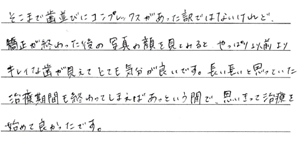 そこまで歯並びにコンプレックスがあった訳ではないけれど、
矯正が終わった後の写真の顔を見てみると やっぱり以前より
キレイな歯が見えて とても気分が良いです。長い長いと思っていた
治療期間も終わってしまえばあっという間で、思いきって治療を
始めて良かったです。